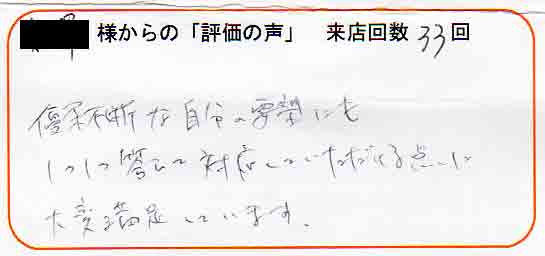 様からの「評価の声」　来店回数 33回
優柔不断な自分の要望にも
1つ1つ答えて対応していただける点に
大変満足しています。